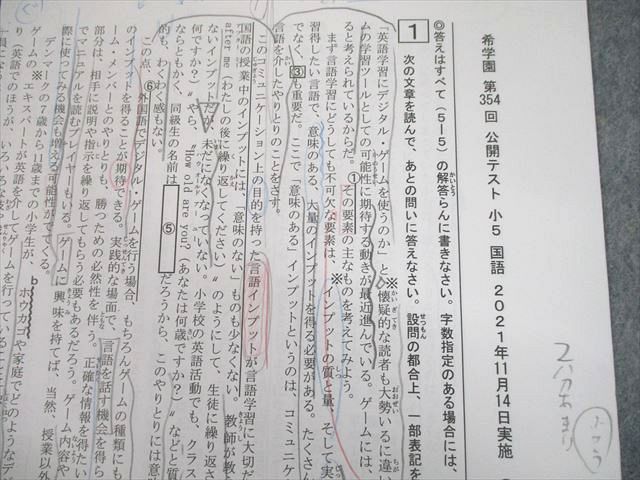 希学園 第354回 公開テスト 小5 国語 2021年11月14日実施
◎答えはすべて(5―5)の解答らんに書きなさい。字数指定のある場合には、
1 次の文章を読んで、あとの問いに答えなさい。設問の都合上、一部表記を
「英語学習にデジタル・ゲームを使うのか」と※懐疑的な読者も大勢いるに違い
ムの学習ツールとしての可能性に期待する動きが最近進んでいる。ゲームには、
ると考えられているからだ。①その要素の主なものを考えてみよう。
まず言語学習にどうしても不可欠な要素は、※インプットの質と量、そして実
習得したい言語で、意味のある、大量のインプットを得る必要がある。たくさん
でなく、③も重要だ。ここで「意味のある」インプットというのは、コミュニケ
言語を介したやりとりのことをさす。
このコミュニケーション上の目的を持った言語インプットが言語学習に大切だ
国語の授業中のインプットには、「意味のない」ものも少なくない。教師が教
after me(わたしの後に繰り返してください)〟のようにして、生徒に繰り返さ
ないインプットだが、未だになくなっていない。小学校の英語活動でも、クラス
何ですか?)〟や、〝How old are you?(あなたは何歳ですか?)〟などと質
ならともかく、同級生の名前は ⑤ だろうから、このやりとりには意味
的も、わくわく感もない。
この点、⑥外国語でデジタル・ゲームを行う場合、もちろんゲームの種類にも
のインプットを得ることが期待できる。実践的な場面で、言語を話す機会を得ら
ーム・メンバーとのやりとりも、勝つための必然性を伴う。正確な情報を得たい
部分は、相手に説明や指示を繰り返してもらう必要もあるだろう。ゲーム内容や
でマニュアルを読むプレイヤーもいる。ゲームに興味を持てば、当然、授業以外
際に使ってみる機会も増える可能性がでてくる。
デンマークの7歳から11歳までの小学生が、bホウカゴや家庭でどのようなデ
ゲームの※エキスパートが英語を介してゲームを行っている